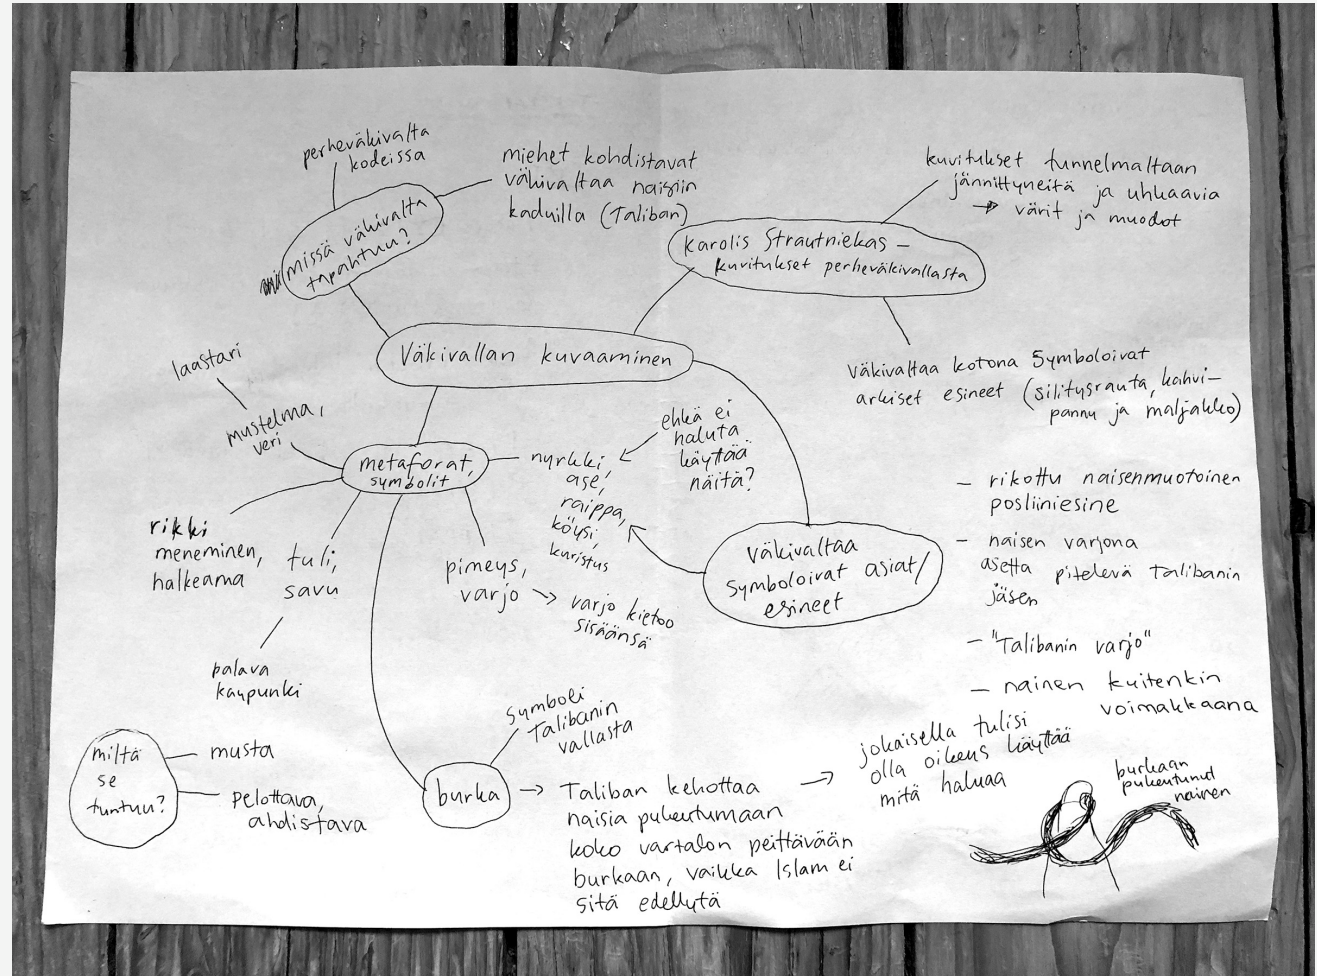 perheväkivalta
kodeissa
miehet kohdistavat
väkivaltaa naisiin
kaduilla (Taliban)
missä väkivalta
tapahtuu?
kuvitukset tunnelmaltaan
jännittyneitä ja uhkaavia
→ värit ja muodot
Karolis Strautniekas –
kuvitukset perheväkivallasta
Väkivallan kuvaaminen
väkivaltaa kotona symboloivat
arkiset esineet (silitysrauta, kahvi-
pannu ja maljakko)
laastari
mustelma,
veri
metaforat,
symbolit
nyrkki,
ase,
raippa,
köysi,
kuristus
ehkä ei
haluta
käyttää
näitä?
väkivaltaa
symboloivat asiat/
esineet
rikki
meneminen,
halkeama
tuli,
savu
palava
kaupunki
pimeys,
varjo
→ varjo kietoo
sisäänsä
– rikottu naisenmuotoinen
posliiniesine
– naisen varjona
asetta pitelevä Talibanin
jäsen
– "Talibanin varjo"
– nainen kuitenkin
voimakkaana
miltä
se
tuntuu?
musta
pelottava,
ahdistava
burka
symboli
Talibanin
vallasta
→ Taliban kehottaa
naisia pukeutumaan
koko vartalon peittävään
burkaan, vaikka Islam ei
sitä edellytä
→ jokaisella tulisi
olla oikeus käyttää
mitä haluaa
burkaan
pukeutunut
nainen